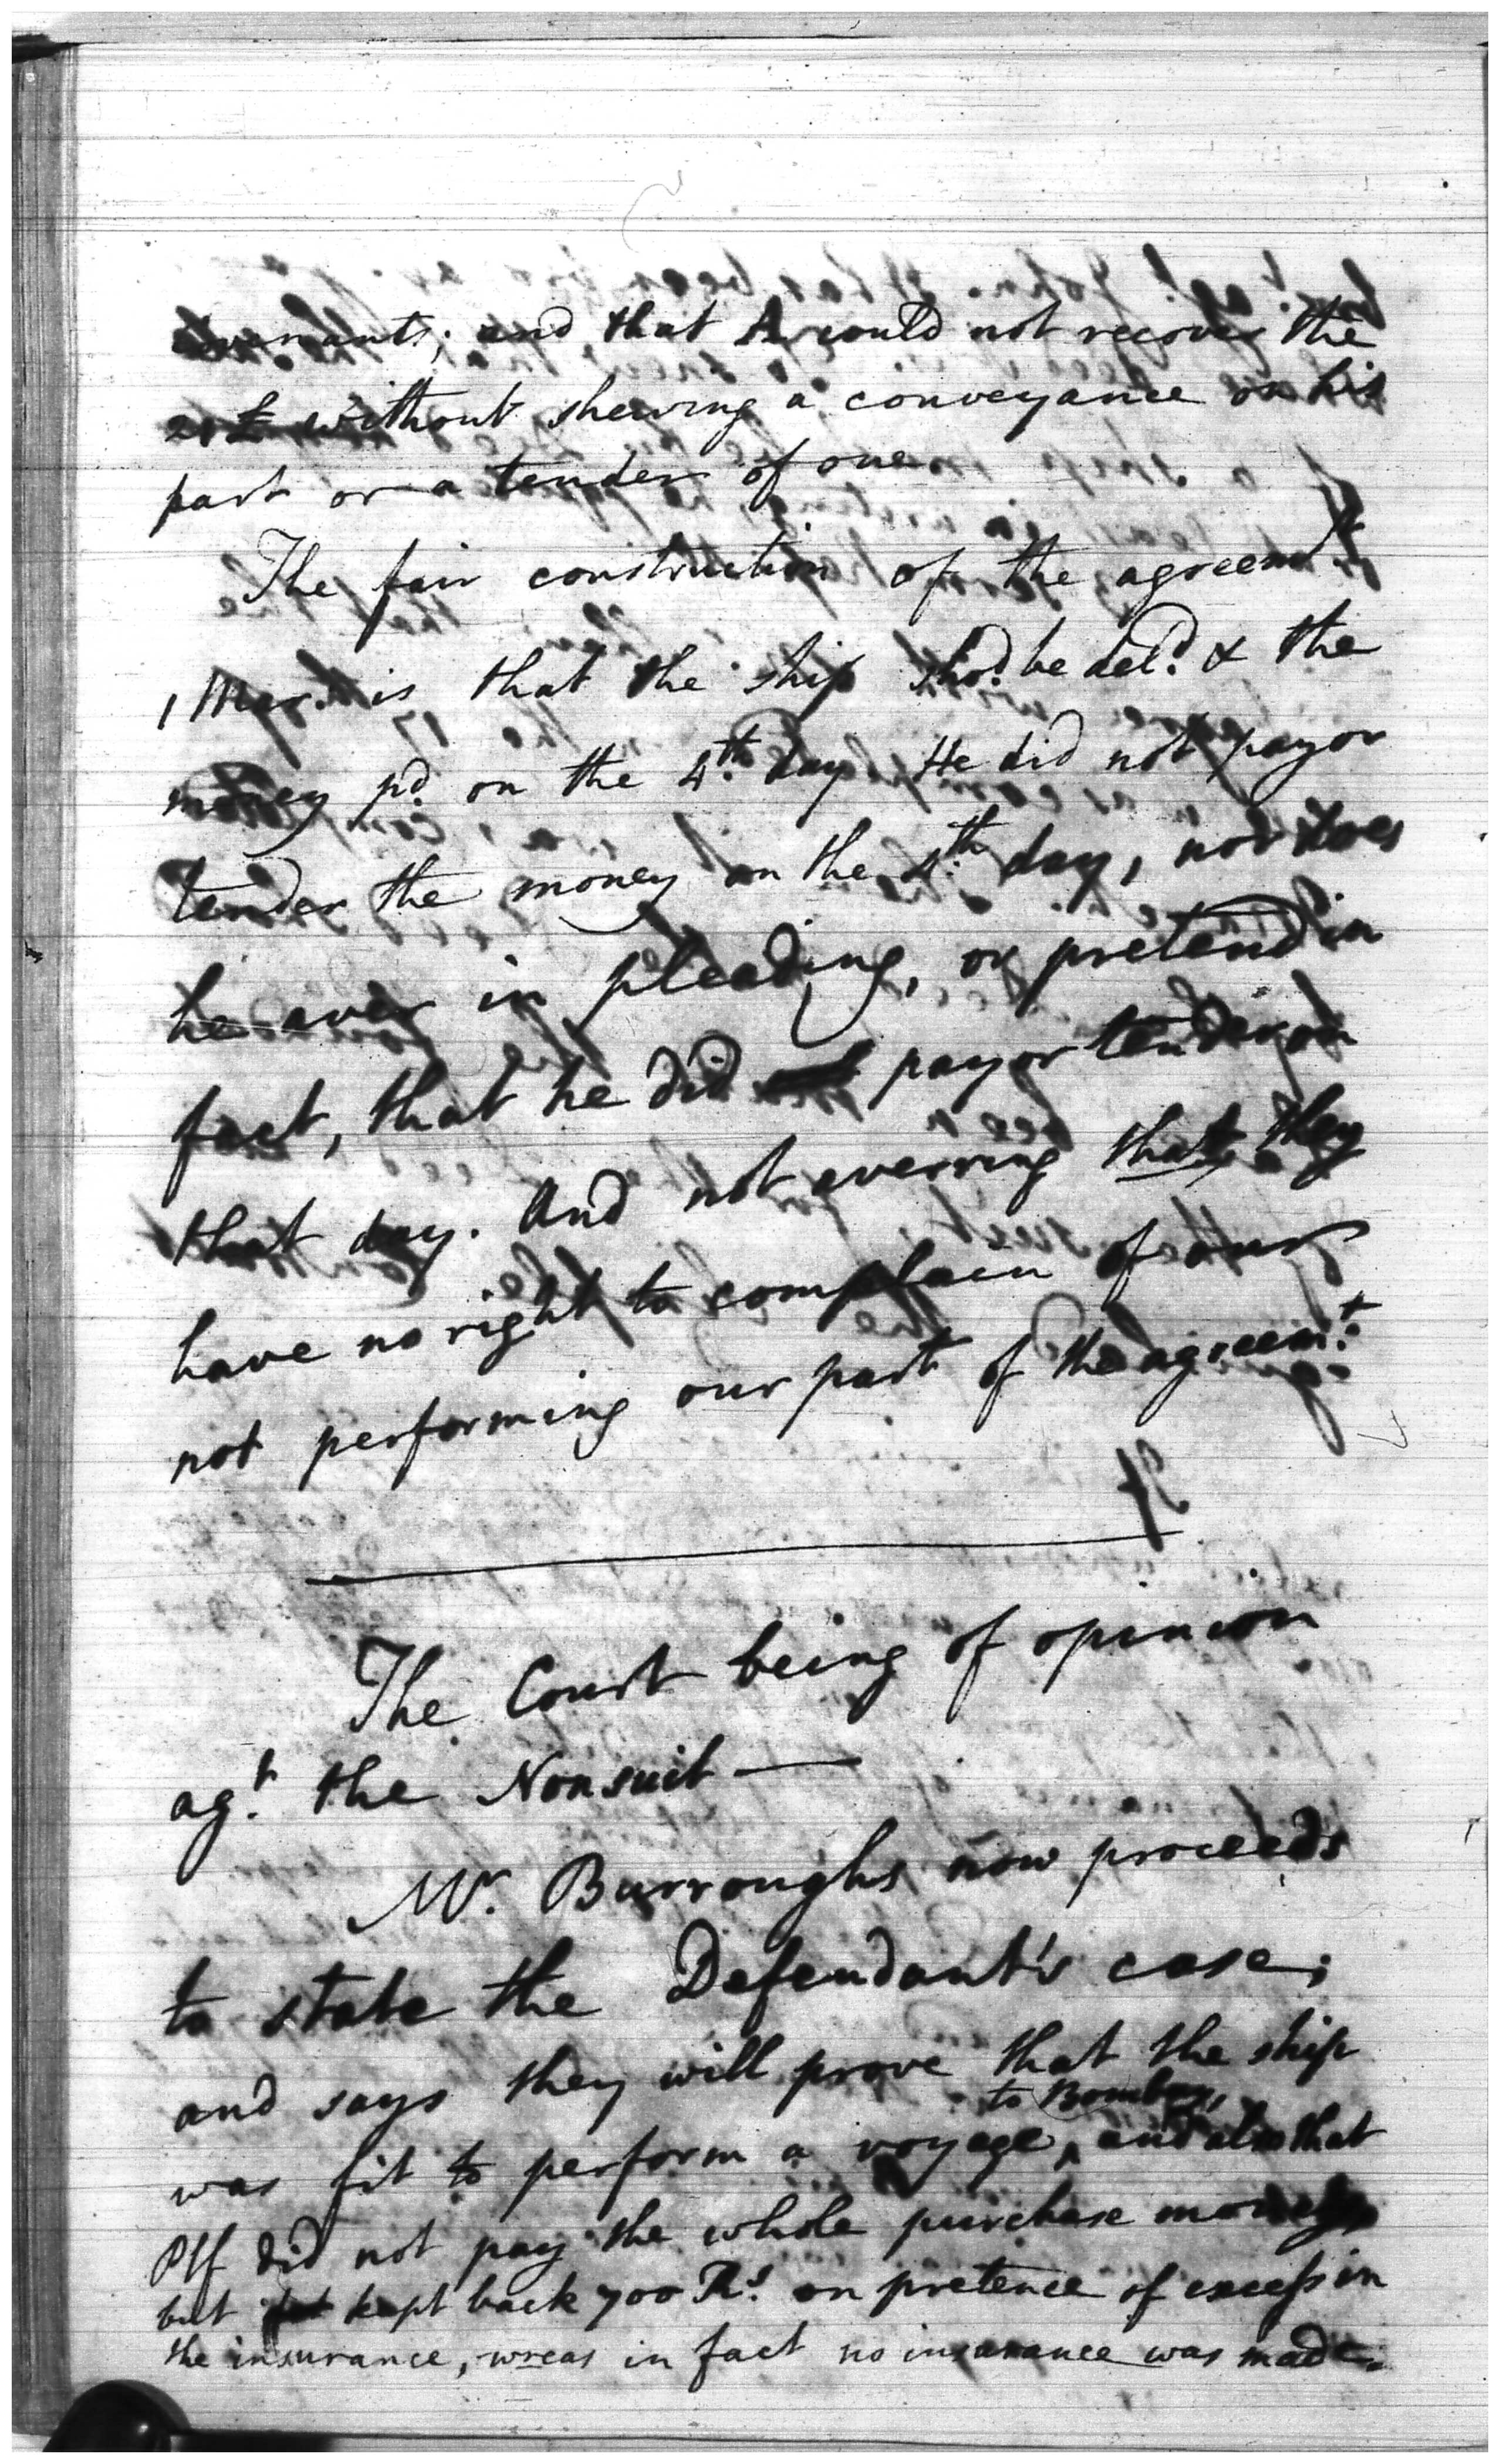 covenants; and that A could not recover the
20£ without shewing a conveyance on his
part or a tender of one
The fair construction of the agreemt.
1 Mar. is that the ship shod. be deld. & the
money pd. on the 4th. day He did not pay or
tender the money on the 4th. day, nor does
he aver in pleading, or pretend in
fact, that he did pay or tender on
that day. And not averring that they
have no right to complain of our
not performing our part of the agreemt.
The Court being of opinion
agt. the Nonsuit —
Mr. Burroughs now proceeds
to state the Defendant's case;
and says they will prove that the ship
was fit to perform a voyage to Bombay, and also that
Plf did not pay the whole purchase money
but kept back 700 Rs. on pretence of excess in
the insurance, wreas in fact no insurance was made.